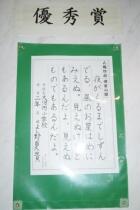 優秀賞
夜がくるまでしずん
でる 昼のお星はめに
みえぬ。見えぬけれど
もあるんだよ、見えぬ
ものでもあるんだよ。